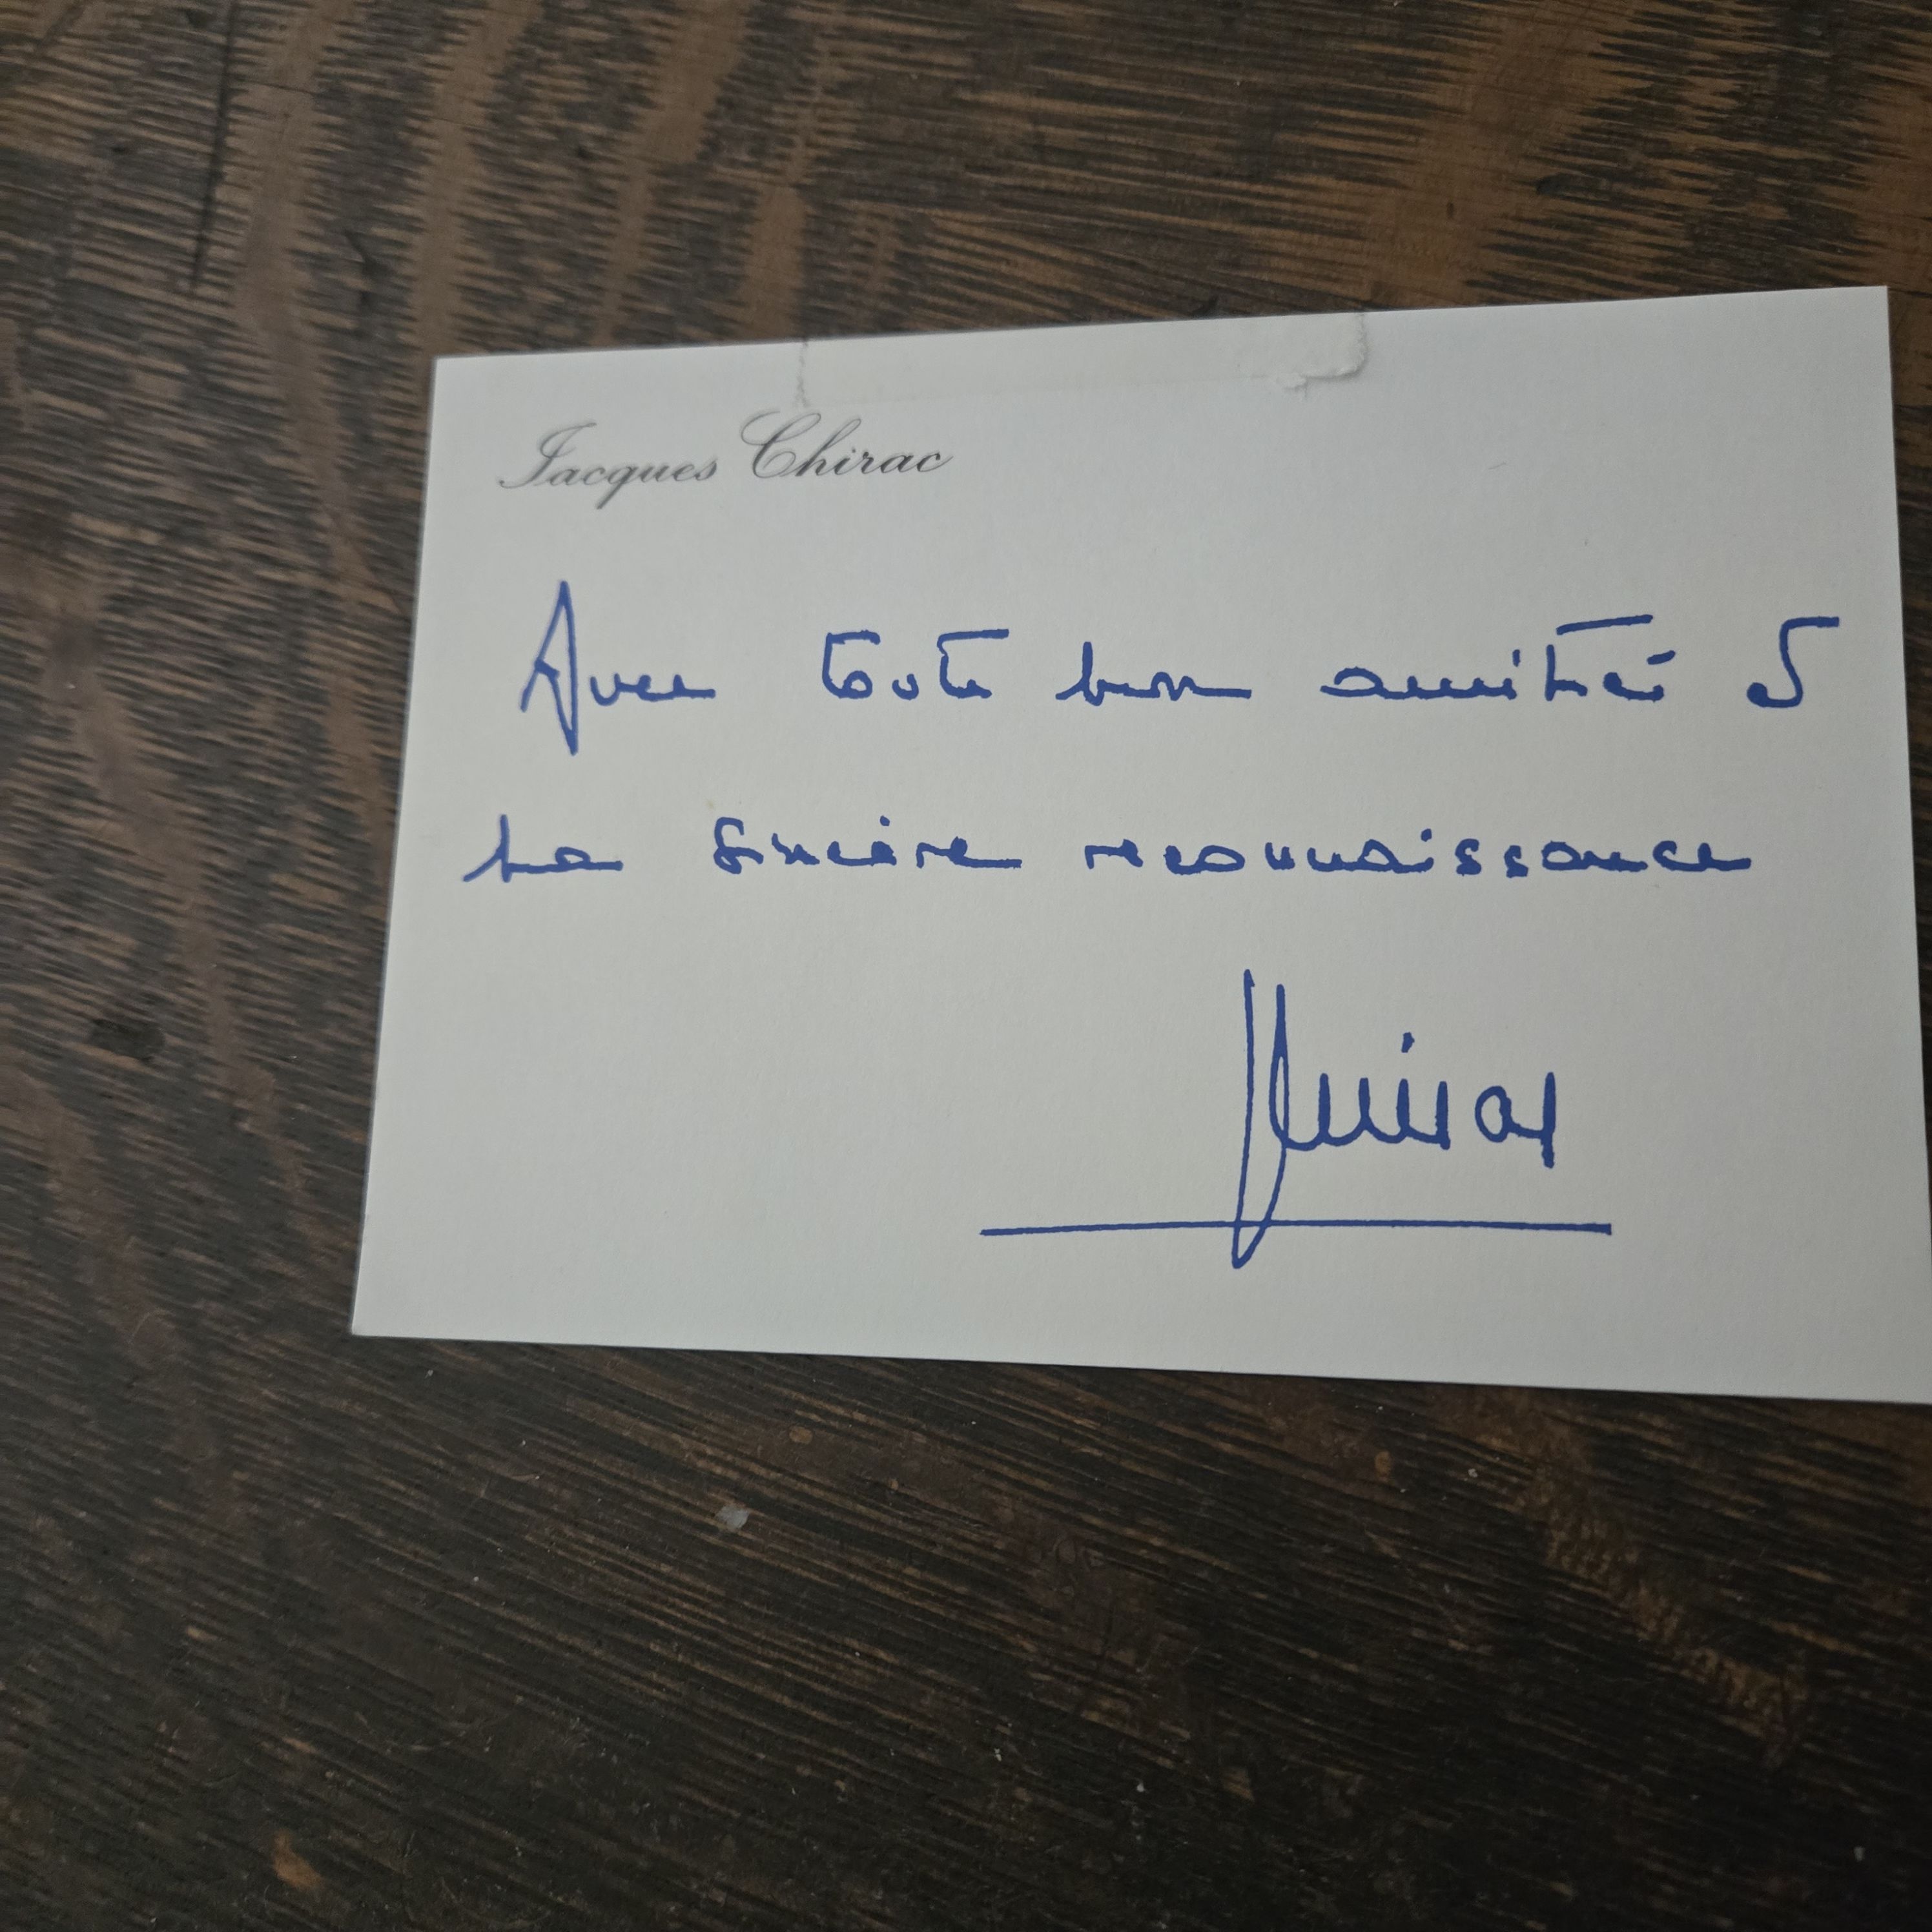 Jacques Chirac
Avec toute mon amitié et
ma sincère reconnaissance
JChirac